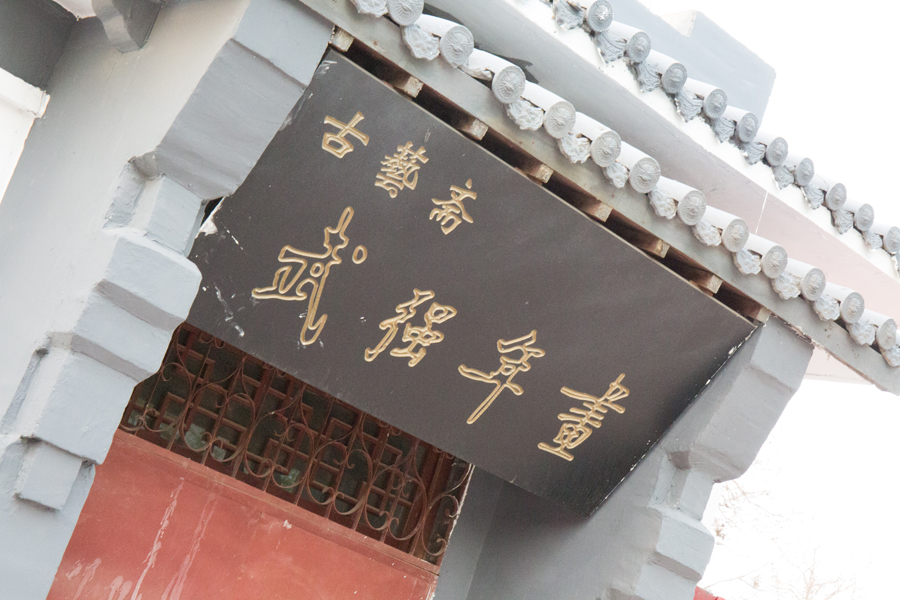 古藝斋
武强年畫